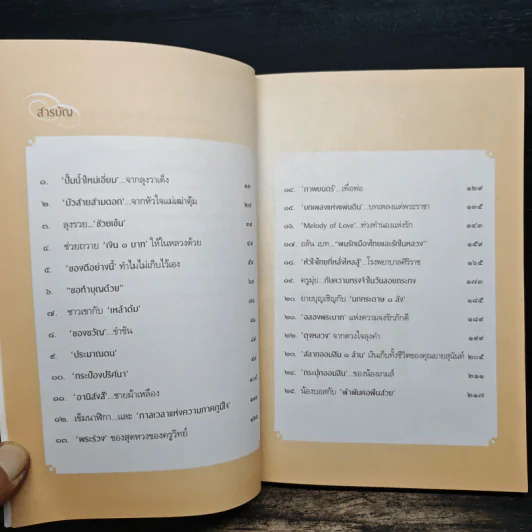 สารบัญ
๑. ‘ปั๊มน้ำใหม่เอี่ยม’...จากลุงวาเด็ง
๒. ‘บัวสายสามดอก’...จากหัวใจแม่เฒ่าตุ้ม ๒๑
๓. ลุงรวย...‘ช้วยเย็น’ ๓๑
๔. ช่วยถวาย ‘เงิน ๑ บาท’ ให้ในหลวงด้วย ๔๑
๕. ‘ของดีอย่างนี้’ ทำไมไม่เก็บไว้เอง
๖. “ขอทำบุญด้วย”
๗. ชาวเขากับ ‘เหล้าต้ม’
๘. ‘ของขวัญ’...ช้ำชัน
๙. ‘ประมาณตน’
๑๐. ‘กระป๋องปริศนา’
๑๑. ‘อานิสงส์’...ชายผ้าเหลือง
๑๒. เข็มนาฬิกา...และ ‘กาลเวลาแห่งความภาคภูมิใจ’
๑๓. ‘พระร่วง’ ของสุดหวงของครูวิทย์
๑๔. ‘ภาพยนตร์’...เพื่อพ่อ ๑๒๙
๑๕. ‘บทเพลงแห่งแผ่นดิน’...บทเพลงแด่พระราชา ๑๓๕
๑๖. ‘Melody of Love’...ท่วงทำนองแห่งรัก ๑๔๓
๑๗. อลัน เบท...“ผมรักเมืองไทยและรักในหลวง” ๑๕๙
๑๘. ‘หัวใจไทยที่หลั่งไหลสู่’...โรงพยาบาลศิริราช ๑๖๕
๑๙. ครูมุ่ย...กับความทรงจำในวันลอยกระทง ๑๗๓
๒๐. ยายบุญเชิญกับ ‘มกกระดาษ ๑ ลัง’ ๑๘๕
๒๑. ‘ฉลองพระบาท’ แห่งความจงรักภักดี ๑๘๙
๒๒. ‘ถุงหลวง’ จากดวงใจลุงคำ ๑๙๙
๒๓. ‘สลากออมสิน ๑ ล้าน’ เงินเก็บทั้งชีวิตของคุณยายสุนันท์ ๒๐๕
๒๔. ‘กระปุกออมสิน’...ของน้องเกมส์ ๒๑๑
๒๕. น้องบอสกับ ‘ผ้าพันคอผืนสวย’ ๒๑๗